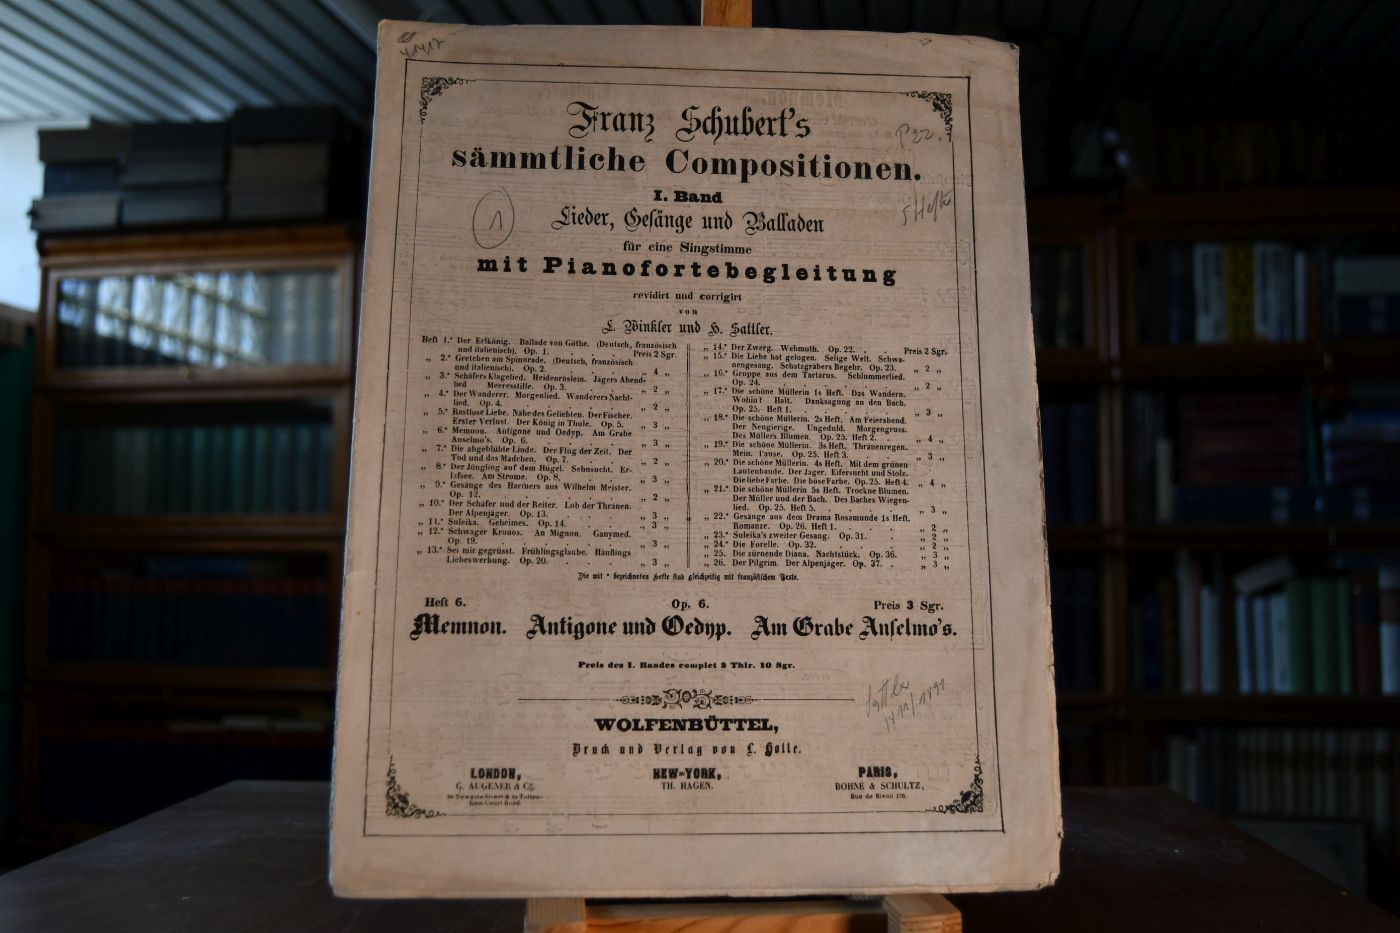 Franz Schubert's
sämmtliche Compositionen.
I. Band
Lieder, Gesänge und Balladen
für eine Singstimme
mit Pianofortebegleitung
revidirt und corrigirt
von
L. Winkler und H. Sattler.
P 22.
5 Hefte
1
Heft 1.* Der Erlkönig. Ballade von Göthe. (Deutsch, französisch
und italienisch). Op. 1. . . . . Preis 2 Sgr.
„ 2.* Gretchen am Spinnrade. (Deutsch, französisch
und italienisch). Op. 2. . . . . „ 4 „
„ 3.* Schäfers Klagelied. Heidenröslein. Jägers Abend-
lied Meeresstille. Op. 3. . . . . „ 2 „
„ 4.* Der Wanderer. Morgenlied. Wanderers Nacht-
lied. Op. 4. . . . . „ 2 „
„ 5.* Rastlose Liebe. Nähe des Geliebten. Der Fischer.
Erster Verlust. Der König in Thule. Op. 5. „ 3 „
„ 6.* Memnon. Antigone und Oedyp. Am Grabe
Anselmo's. Op. 6. . . . . „ 3 „
„ 7.* Die abgeblühte Linde. Der Flug der Zeit. Der
Tod und das Mädchen. Op. 7. . . . . „ 2 „
„ 8.* Der Jüngling auf dem Hügel. Sehnsucht. Er-
lafsee. Am Strome. Op. 8. . . . . „ 3 „
„ 9.* Gesänge des Harfners aus Wilhelm Meister.
Op. 12. . . . . „ 2 „
„ 10.* Der Schäfer und der Reiter. Lob der Thränen.
Der Alpenjäger. Op. 13. . . . . „ 3 „
„ 11.* Suleika. Geheimes. Op. 14. . . . . „ 3 „
„ 12.* Schwager Kronos. An Mignon. Ganymed.
Op. 19. . . . . „ 3 „
„ 13.* Sei mir gegrüsst. Frühlingsglaube. Hänflings
Liebeswerbung. Op. 20. . . . . „ 3 „
„ 14.* Der Zwerg. Wehmuth. Op. 22. . . Preis 2 Sgr.
„ 15.* Die Liebe hat gelogen. Selige Welt. Schwa-
nengesang. Schatzgräbers Begehr. Op. 23. „ 2 „
„ 16.* Gruppe aus dem Tartarus. Schlummerlied.
Op. 24. . . . . „ 2 „
„ 17.* Die schöne Müllerin 1s Heft. Das Wandern.
Wohin? Halt. Danksagung an den Bach.
Op. 25. Heft 1. . . . . „ 3 „
„ 18.* Die schöne Müllerin. 2s Heft. Am Feierabend.
Der Neugierige. Ungeduld. Morgengruss.
Des Müllers Blumen. Op. 25. Heft 2. . . „ 4 „
„ 19.* Die schöne Müllerin. 3s Heft. Thränenregen.
Mein. Pause. Op. 25. Heft 3. . . . . „ 3 „
„ 20.* Die schöne Müllerin. 4s Heft. Mit dem grünen
Lautenbande. Der Jäger. Eifersucht und Stolz.
Die liebe Farbe. Die böse Farbe. Op. 25. Heft 4. „ 4 „
„ 21.* Die schöne Müllerin 5s Heft. Trockne Blumen.
Der Müller und der Bach. Des Baches Wiegen-
lied. Op. 25. Heft 5. . . . . „ 3 „
„ 22.* Gesänge aus dem Drama Rosamunde 1s Heft.
Romanze. Op. 26. Heft 1. . . . . „ 2 „
„ 23.* Suleika's zweiter Gesang. Op. 31. . . „ 2 „
„ 24.* Die Forelle. Op. 32. . . . . „ 2 „
„ 25. Die zürnende Diana. Nachtstück. Op. 36. „ 3 „
„ 26. Der Pilgrim. Der Alpenjäger. Op. 37. . „ 3 „
Die mit * bezeichneten Hefte sind gleichzeitig mit französischem Texte.
Heft 6. Op. 6. Preis 3 Sgr.
Memnon. Antigone und Oedyp. Am Grabe Anselmo's.
Preis des I. Bandes complet 2 Thlr. 10 Sgr.
WOLFENBÜTTEL,
Druck und Verlag von L. Holle.
LONDON, NEW-YORK, PARIS,
G. AUGENER & Co. TH. HAGEN. BOHNÉ & SCHULTZ,
86 Newgate-Street & 44 Totten- Rue de Rivoli 170.
ham Court Road.